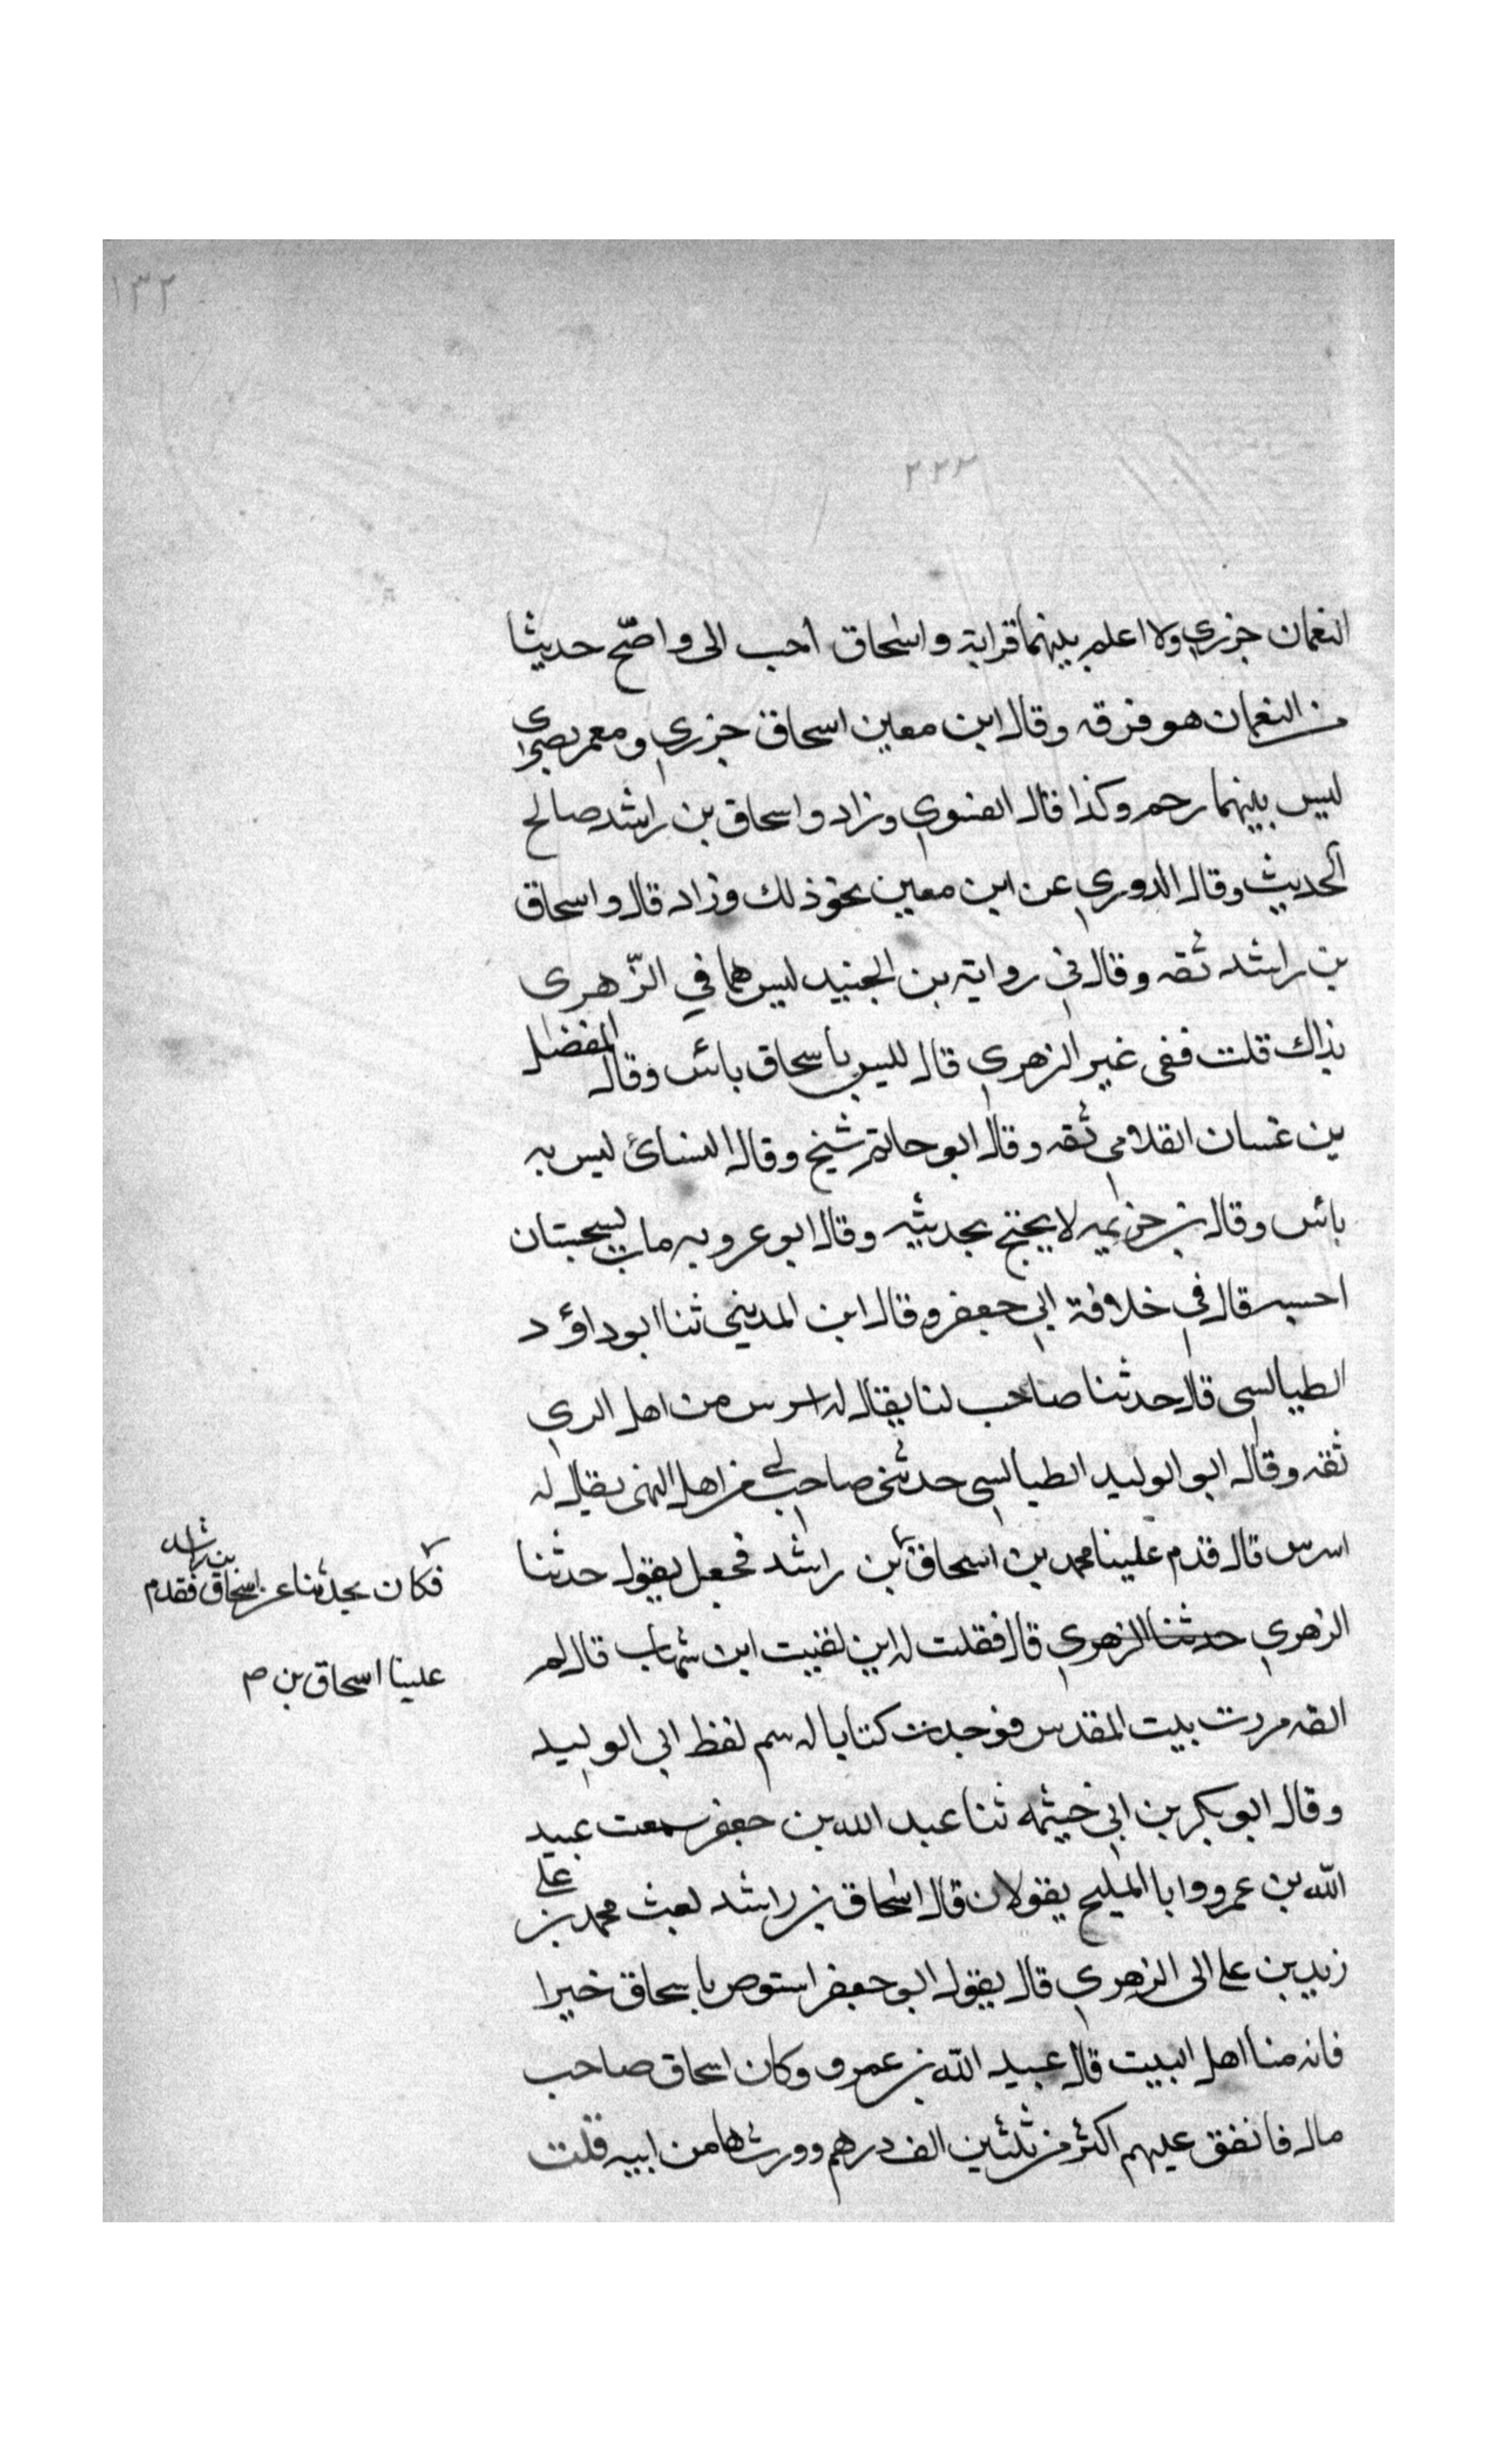 ١٣٢
٢٢٣
النعمان جزري ولا اعلم بينهما قرابة واسحاق احب الى واصح حديثا
من النعمان هو فرقه وقال ابن معين اسحاق جزري ومعمر بصرى
ليس بينهما رحم وكذا قال الفسوي وزاد واسحاق بن راشد صالح
الحديث وقال الدوري عن ابن معين نحو ذلك وزاد قال واسحاق
بن راشد ثقه وقال في رواية بن الجنيد ليس هما في الزّهرى
بذاك قلت ففى غير الزهري قال ليس باسحاق بائس وقال المفضل
بن غسان الغلامي ثقه وقال ابو حاتم شيخ وقال النسائ ليس به
بائس وقال بن خزيمه لا يحتج بحديثه وقال ابو عروبه مات بسجستان
احسبه قال في خلافة ابي جعفر وقال ابن المديني ثنا ابو داؤد
الطيالسي قال حدثنا صاحب لنا يقال له اسرس من اهل الري
ثقه وقال ابو الوليد الطيالسي حدثنى صاحب لي من اهل الرى يقال له
اسرس قال قدم علينا محمد بن اسحاق بن راشد فجعل يقول حدثنا
فكان يحدثنا عن اسحاق بن راشد فقدم
علينا اسحاق بن صـ
الزهري حدثنا الزهري قال فقلت له اين لقيت ابن شهاب قال لم
القه مررت ببيت المقدس فوجدت كتابا له سم لفظ ابي الوليد
وقال ابو بكر بن ابي خيثمه ثنا عبد الله بن جعفر سمعت عبيد
الله بن عمرو وابا المليح يقولان قال اسحاق بن راشد بعث محمد بن علي
زيد بن على الى الزهري قال يقول ابو جعفر استوص باسحاق خيرا
فانه منا اهل البيت قال عبيد الله بن عمرو وكان اسحاق صاحب
مال فانفق عليهم اكثر من ثلثين الف درهم وورثها من ابيه قلت